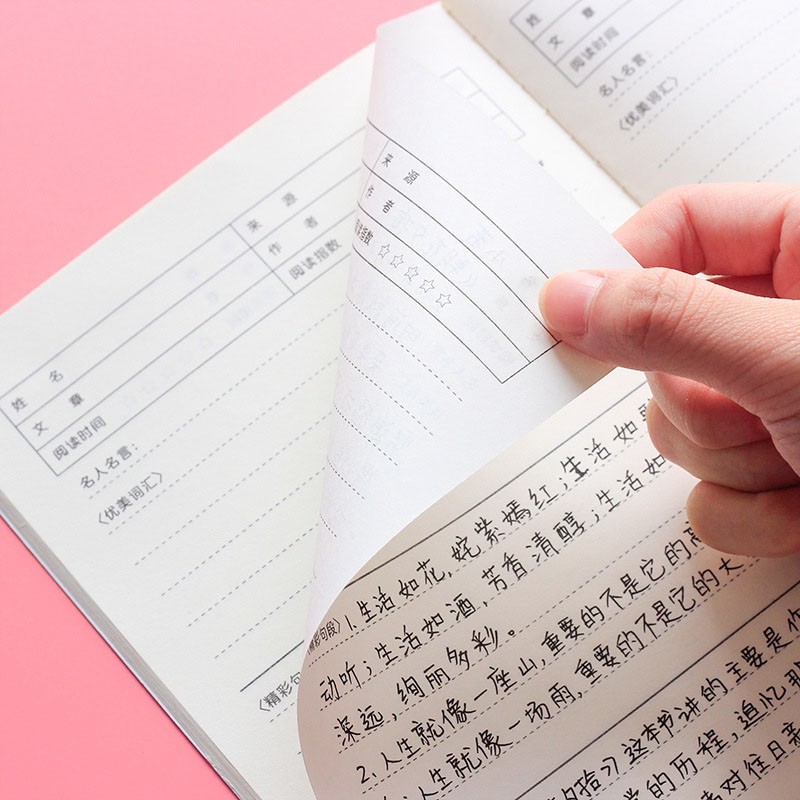 姓 名
来 源
文 章
作 者
阅读时间
阅读指数
名人名言:
《优美词汇》
《精彩句
来 源
者
☆☆☆☆☆
姓
文 章
阅读时间
名人名言:
《优美词汇》
《精彩句段》1.生活如花,姹紫嫣红;生活如
动听;生活如酒,芳香清醇;生活如
深远,绚丽多彩。
2.人生就像一座山,重要的不是它的高
人生就像一场雨,重要的不是它的大
拾》这本书讲的主要是作
的历程,追忆
对往日